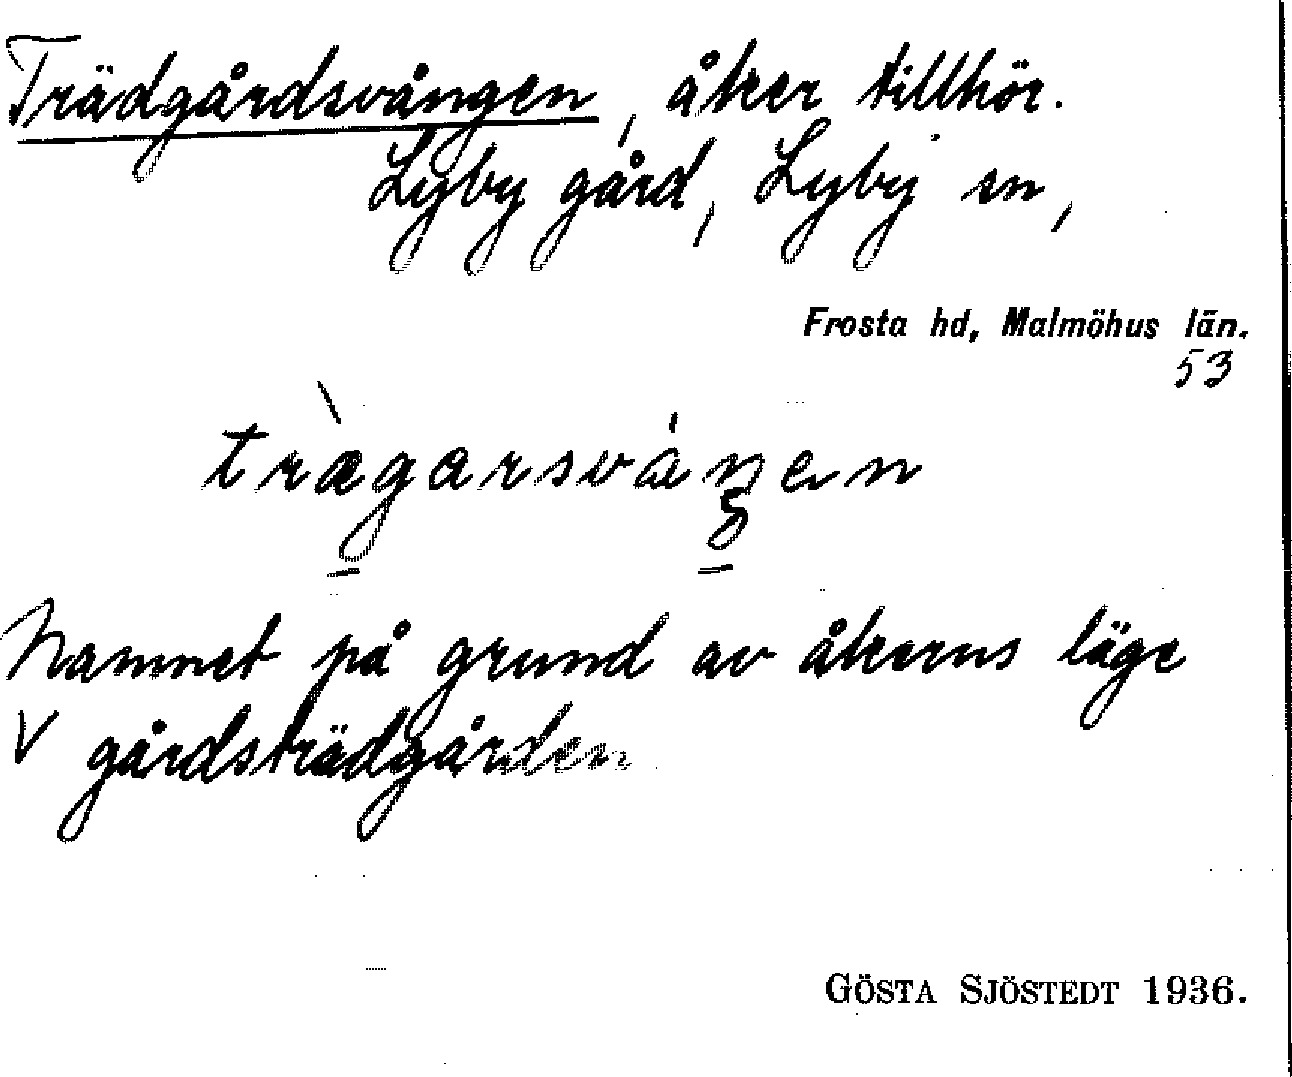 Trädgårdsvången, åker tillhör.
Lyby gård, Lyby sn,
Frosta hd, Malmöhus län.
53
trægarsváŋen
Namnet på grund av åkerns läge
V gårdsträdgården
GÖSTA SJÖSTEDT 1936.